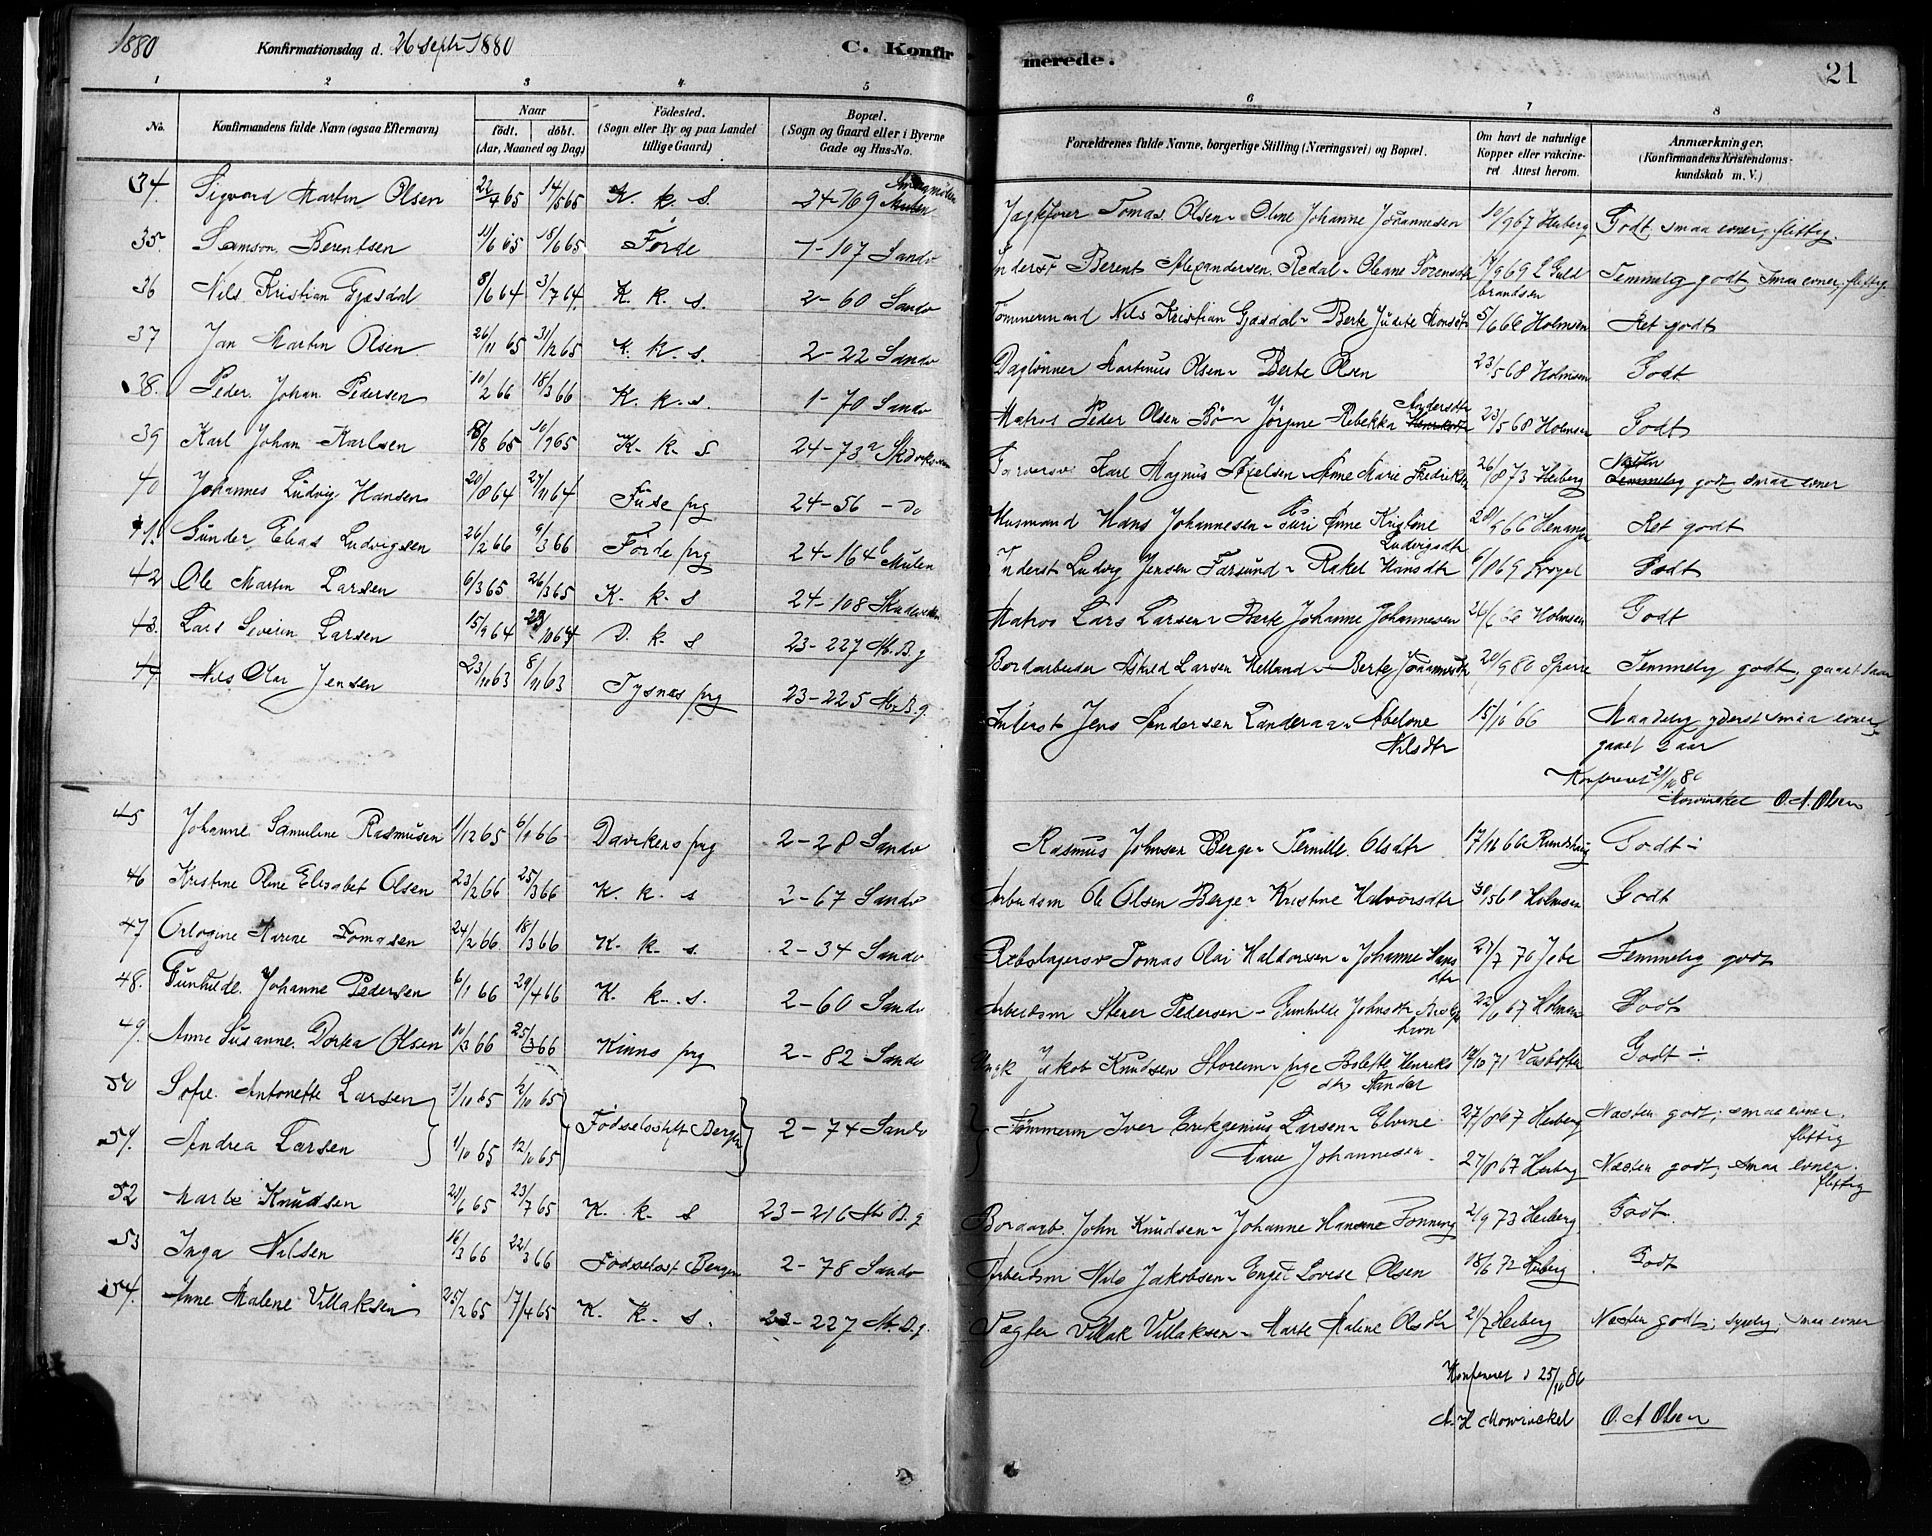 1880 Konfirmationsdag d. 26 septr 1880 C. Konfirmerede. 21
1 2 3 4 5 6 7 8
No. Konfirmandens fulde Navn (ogsaa Efternavn) Naar født. døbt. (Aar, Maaned og Dag) Fødested. (Sogn eller By og paa Landet tillige Gaard) Bopæl. (Sogn og Gaard eller i Byerne Gade og Hus-No. Forældrenes fulde Navne, borgerlige Stilling (Næringsvei) og Bopæl. Om havt de naturlige Kopper eller vakcineret Attest herom. Anmærkninger. (Konfirmandens Kristendomskundskab m. V.)
34. Sigvard Martin Olsen 22/4 65 14/5 65 K. k. s. 24-769 Tomas Olsen - Oline Johanne Johannesen 10/9 67 Heiberg Godt, smaa evner, flittig.
35. Samson Berentsen 11/6 65 18/6 65 Førde 1-107 Sandv Inderst Berent Alexandersen Redal - Oleane Sørensdtr 9 69 L Guldbrandsen Temmelig godt smaa evner, flittig.
36 Nils Kristian Gjesdal 8/6 64 3/7 64. K. k. s. 2-60 Sandv Tømmermand Nils Kristian Gjesdal - Berte Judite Monsdtr 5/6 66 Holmsen Ret godt
37 Jan Martin Olsen. 26/11 65 31/12 65 K. k. s. 2-22 Sandv Daglønner Martinus Olsen - Berte Olsen 23/5 68 Holmsen Godt
38. Peder Johan Pedersen 10/2 66 18/3 66 K. k. s. 1-70 Sandv Matros Peder Olsen Bø - Jørgine Rebekka Andersdtr 23/5 68 Holmsen Godt
39 Karl Johan Karlsen 18/8 65 10/9 65 K. k. s 24-73a Karl Magnus Axelsen - Anne Marie Fredriksen 26/8 73 Heiberg Næsten godt smaa evner
40 Johannes Ludvig Hansen 20/8 64 27/11 64 Fuse prg 24-56 - Do Husmand Hans Johannesen - Guri Anne Kristine Ludvigsdtr 66 Henanger Ret godt
41. Gunder Elias Ludvigsen 26/2 66 9/3 66 Førde prg 24-164b Mulen Inderst Ludvig Jensen Farsund - Rakel Hansdtr 6/8 69 Godt
42 Ole Martin Larsen 6/3 65 26/3 65 K. k. s 24-108 Matros Lars Larsen - Berte Johanne Johannesen 26/6 66 Holmsen Godt
43. Lars Severin Larsen 15/9 64 23/10 64 D. k. s 23-227 M. B. g Bordarbeider Lars Larsen Helland - Berte Johannesdtr 20/9 80 Sparre Temmelig godt, gaaet 1 aar
44 Nils Olai Jensen 23/10 63 8/11 63 Tysnæs prg 23-225 M. B. g. Inderst Jens Andersen Tanderaa - Abelone Nilsdtr 15/10 66 Maadelig yderst smaa evner, gaaet 2 aar
Konfereret 21/10 80
Mowinckel O. A. Olsen
45 Johanne Samuline Rasmusen 1/12 65 6/1 66 Davikens prg 2-28 Sandv Rasmus Johnsen Berge - Pernille Olsdtr 17/10 66 Godt ÷
46 Kristine Oline Elisabet Olsen 23/2 66 25/3 66 K. k. s 2-67 Sandv Arbeidsm Ole Olsen Berge - Kristine Halvorsdtr 30/5 68 Holmsen Godt
47 Orlogine Marine Tomasen 24/2 66 18/3 66 K. k. s. 2-34 Sandv Rebslagersv Tomas Olai Haldorsen - Johanne Hansdtr 27/7 70 Jebe Temmelig godt
48. Gunhilde Johanne Pedersen 6/1 66 29/4 66 K. k. s. 2-60 Sandv Arbeidsm Stener Pedersen - Gunhilde Johnsdtr 22/6 67 Holmsen Godt
49. Anne Susanne Dortea Olsen 10/3 66 25/3 66 Kinns prg 2-82 Sandv Jakob Knudsen Storem - prg Bolette Henriksdtr Standal 12/10 71 Godt ÷
50 Sofie Antonette Larsen 1/10 65 12/10 65 Fødselsstift Bergen 2-74 Sandv Tømmerm Iver Larsen - Elvine Marie Johannesen. 27/8 67 Heiberg Næsten godt, smaa evner. flittig
51. Andrea Larsen 1/10 65 12/10 65 27/8 67 Heiberg Næsten godt, smaa evner. flittig
52 Marte Knudsen 21/6 65 23/7 65 K. k. s 23-216 M. B. g Bordarb. John Knudsen - Johanne Hansine Fonning 2/9 73 Heiberg Godt.
53 Inga Nilsen 16/3 66 22/3 66 Fødselsst Bergen 2-78 Sandv Arbeidsm Nils Jakobsen - Engel Lovise Olsen 18/6 72 Heiberg Godt
54. Anne Malene Villaksen 25/2 65 17/4 65 K. k. s. 23-227 M. B. g. Vægter Villak Villaksen - Marte Malene Olsdtr Heiberg Næsten godt, sygelig, smaa evner
Konfereret d 25/10 80
A. H Mowinckel O. A Olsen